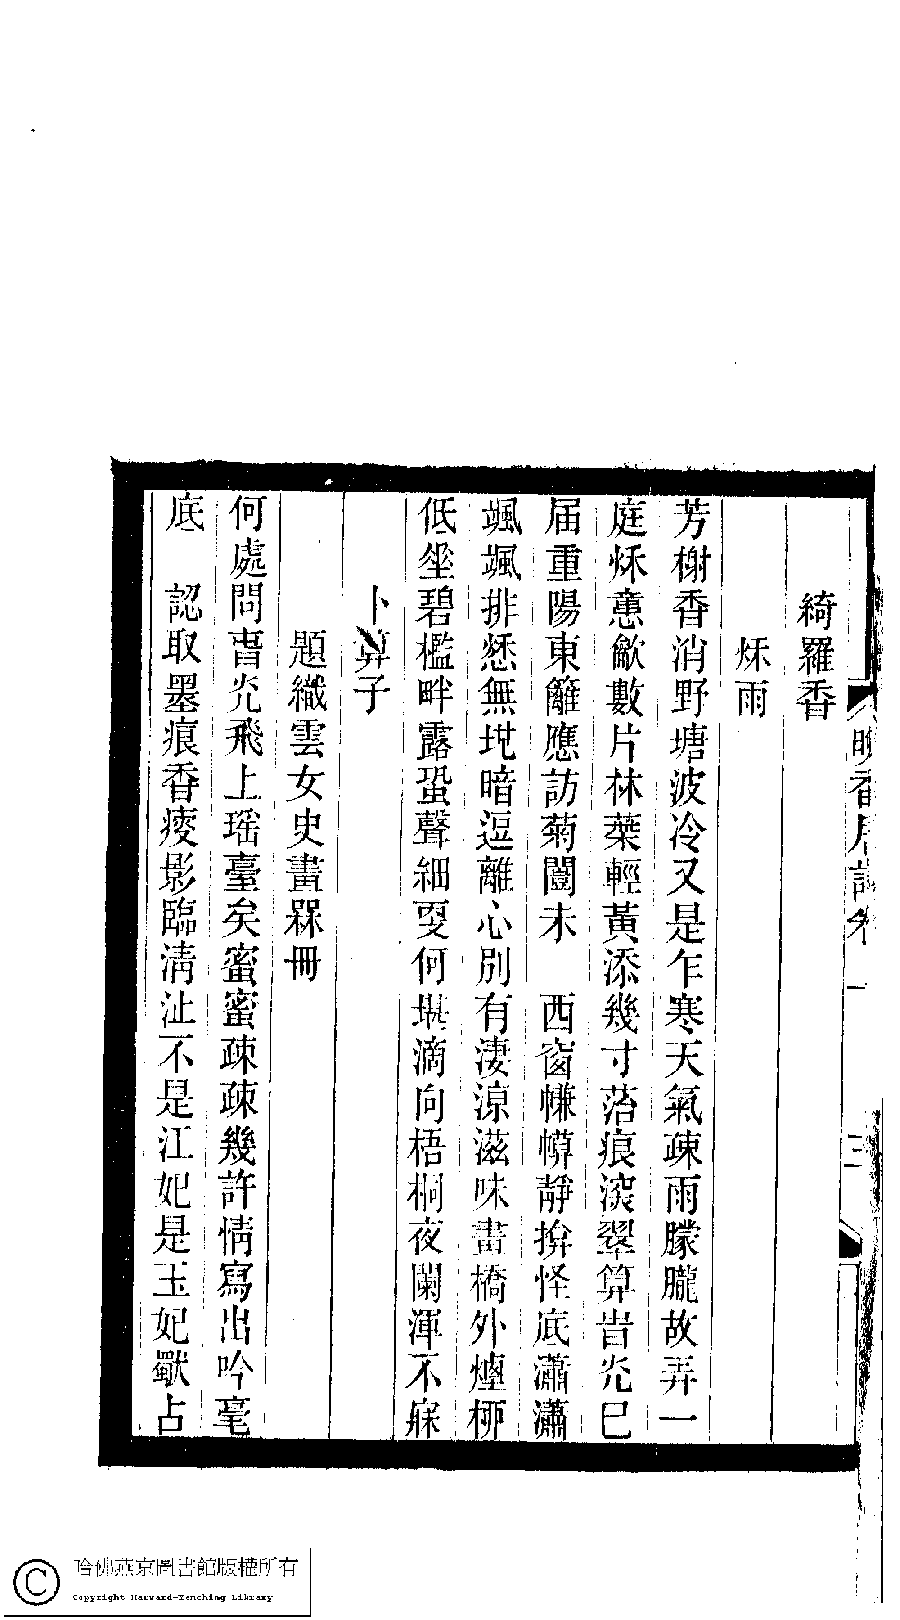 綺羅香
秌雨
芳榭香消野塘波冷又是乍寒天氣疎雨朦朧故弄一
庭秌意歛數片林葉輕黃添幾寸落痕深翠算旹光已
届重陽東籬應訪菊闓未　西窗㡘幙靜揜怪底瀟瀟
颯颯排愁無地暗逗離心別有淒涼滋味畫橋外煙柳
低坐碧檻畔露蛩聲細耎何堪滴向梧桐夜闌渾不寐
卜算子
題織雲女史畫槑冊
何處問旾光飛上瑶臺矣蜜蜜疎疎幾許情寫出吟毫
底　認取墨痕香瘦影臨淸沚不是江妃是玉妃獸占
晚香居詞卷一
三
哈佛燕京圖書館版權所有
Copyright Harvard-Yenching Library